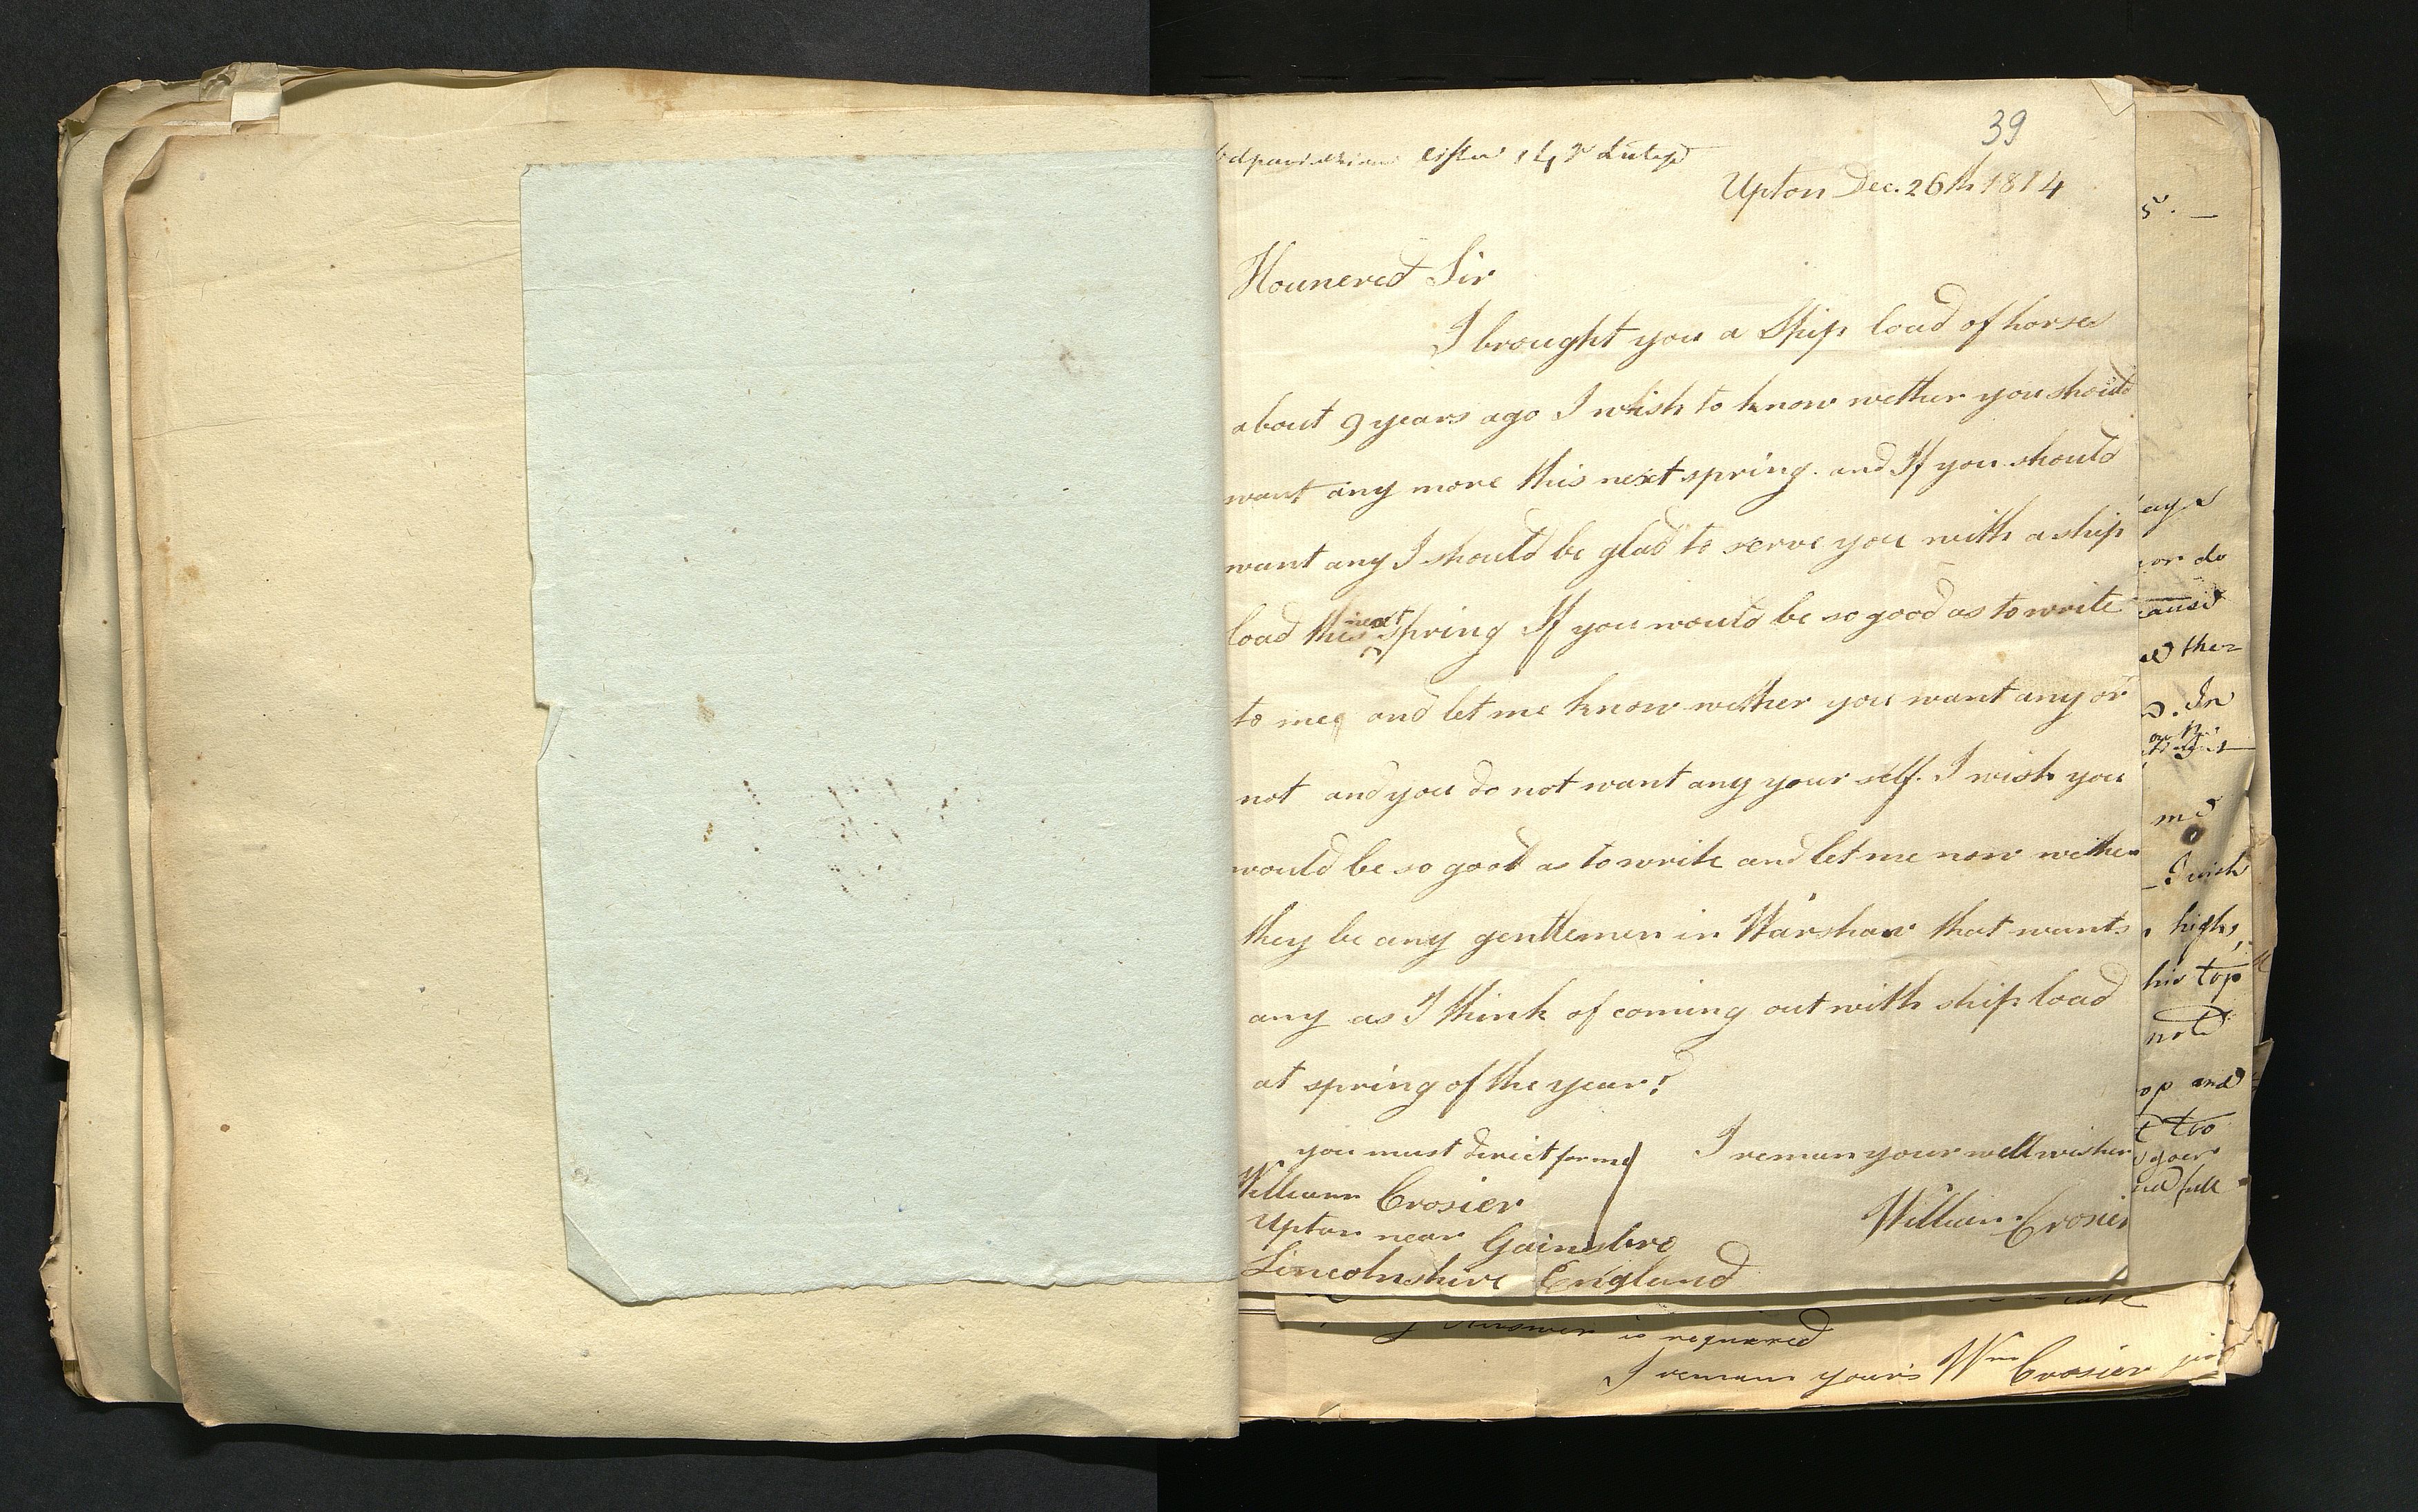 39
14 Lutego
Upton Dec. 26th 1814
Hounered Sir
I brought you a Ship load of horses
about 9 years ago I wish to know wether you should
want any more this next spring. and If you should
want any I should be glad to serve you with a ship
load this next Spring If you would be so good as to write
to me and let me know wether you want any or
not and you do not want any your self. I wish you
would be so good as to write and let me now wether
they be any gentlemen in Warshaw that wants
any as I think of coming out with ship load
at spring of the year!
you must direct for me
I reman your well wisher
William Crosier
William Crosier
Upton near Gainsbro
Lincolnshire England
or do
I wish
high,
his top
note
and
too
full
Answer is required
I remain your's Wm Crosier